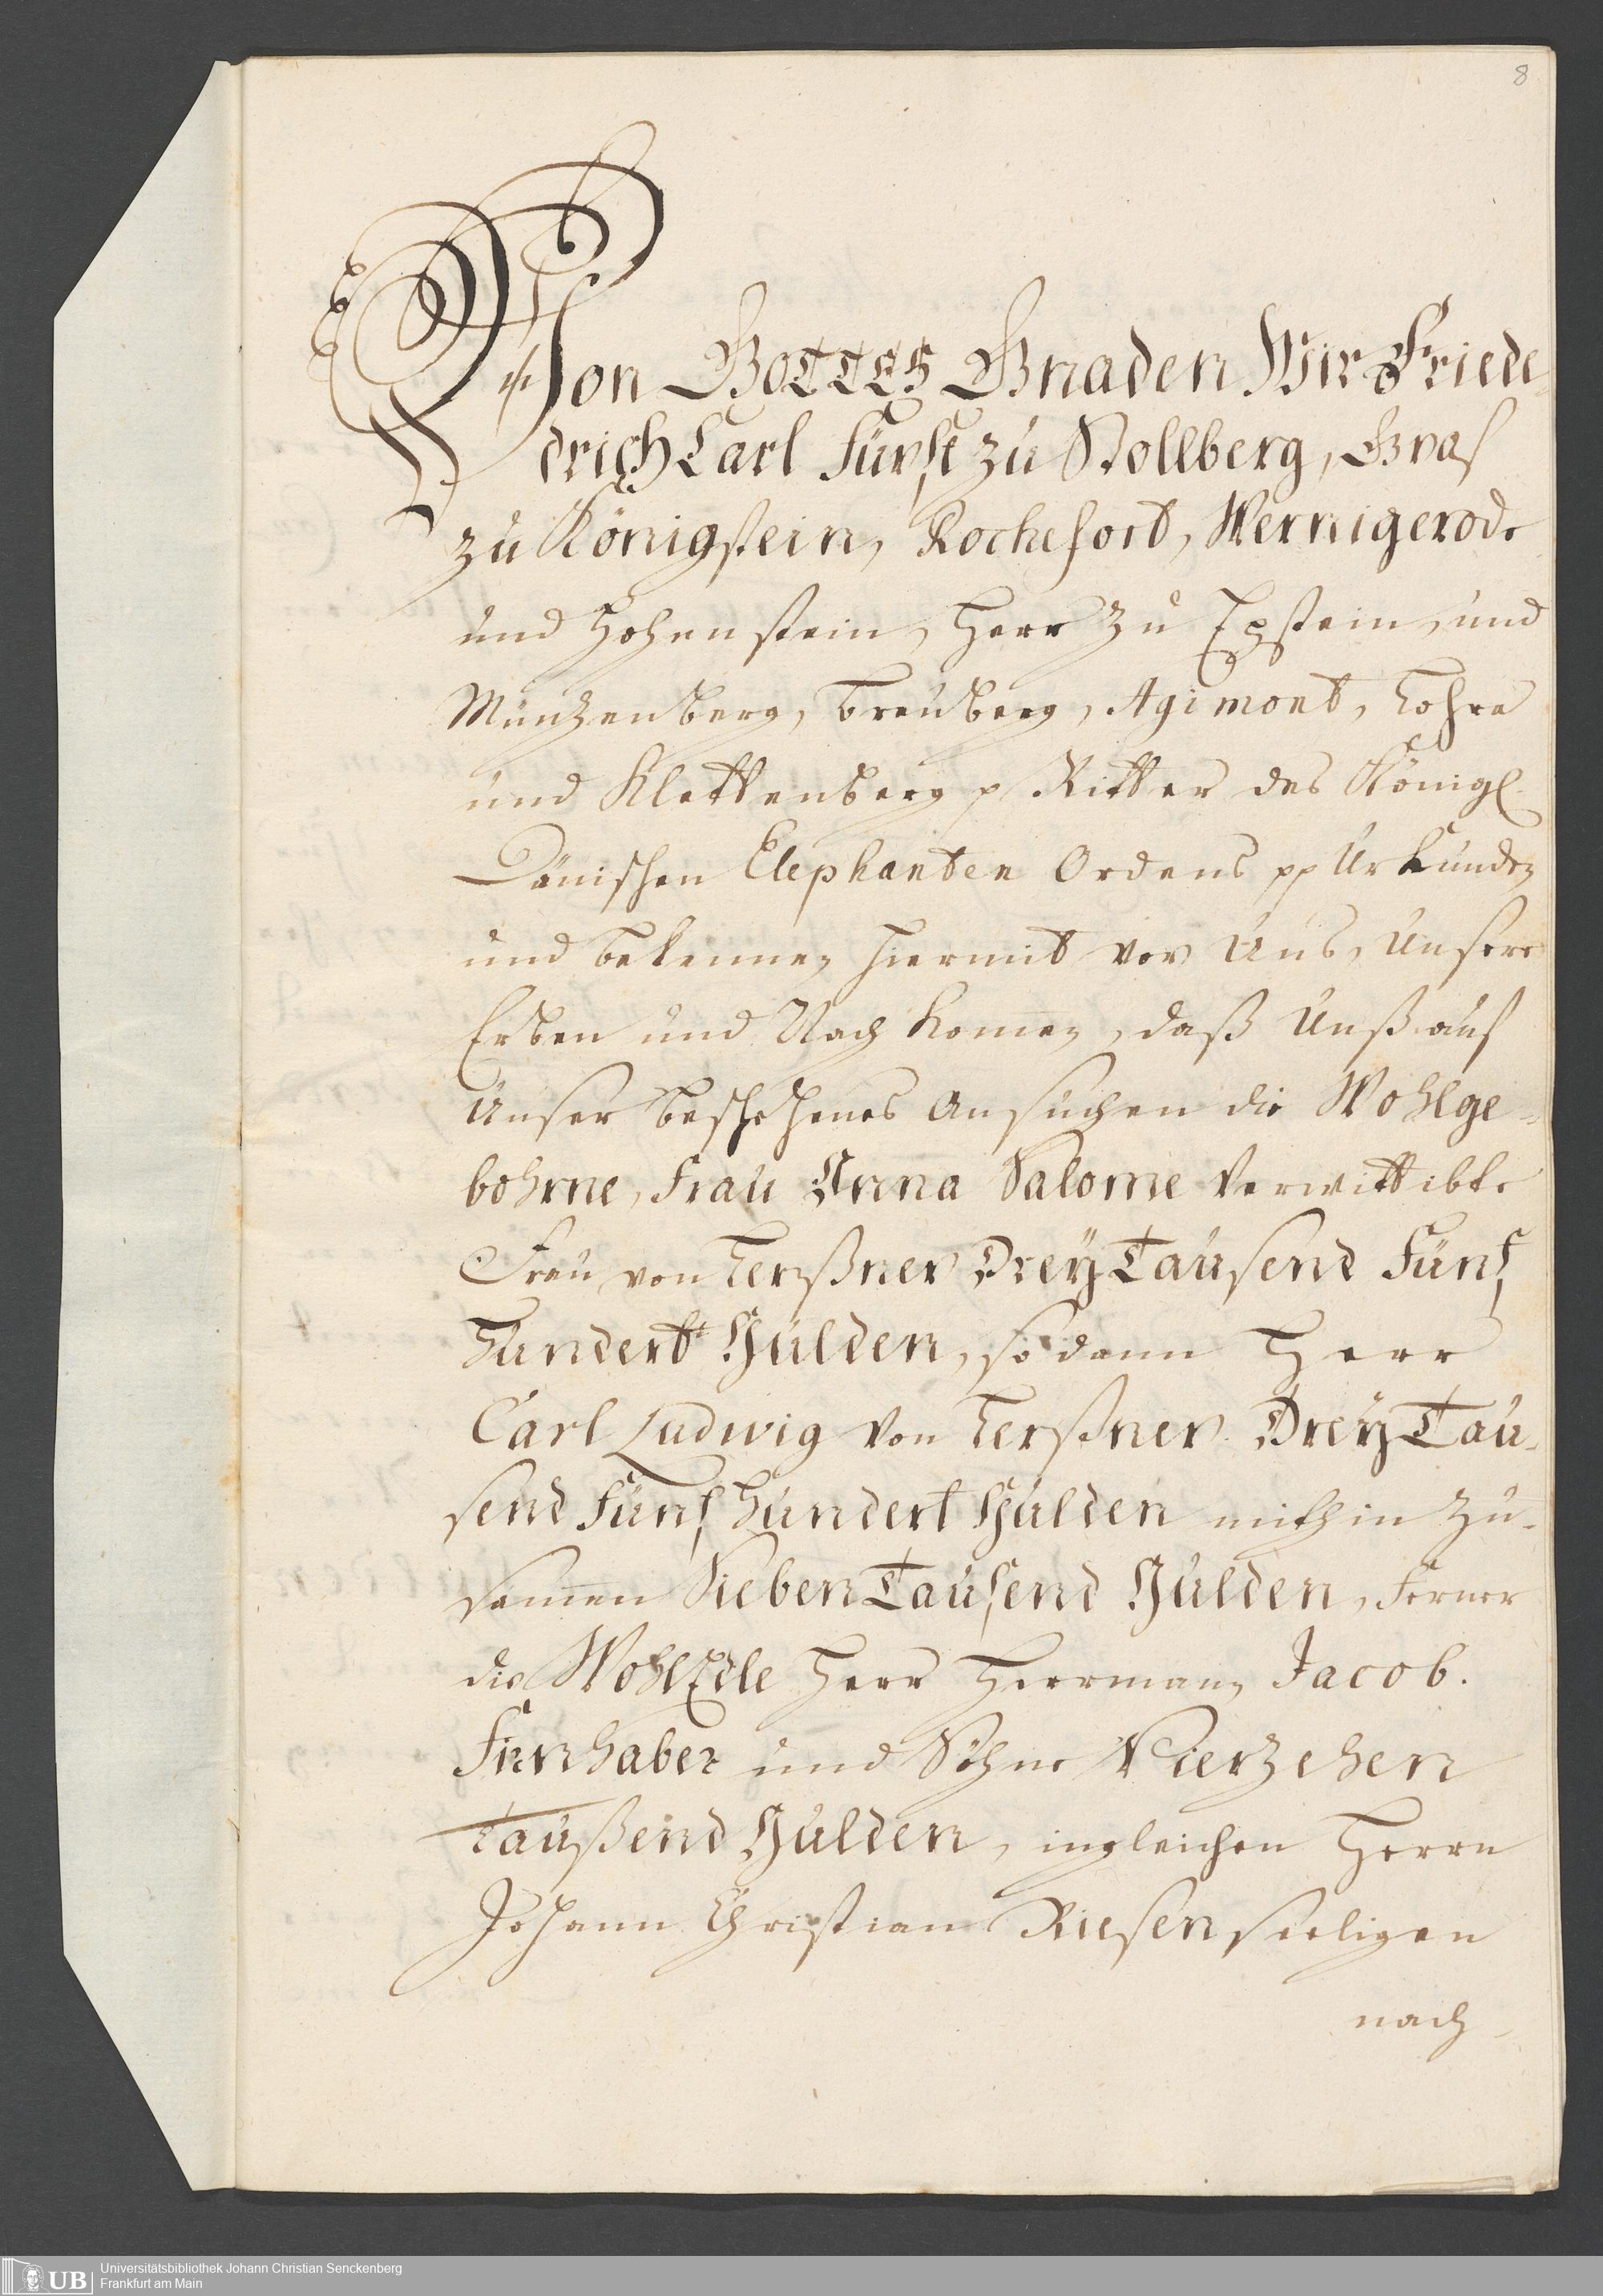 8
Von GOTTES Gnaden Wir Friede-
drich Carl Fürst zu Stollberg, Graf
zu Königstein, Rochefort, Wernigerode
und Hohenstein, Herr zu Epstein, und
Müntzenberg, Breuberg, Agimont, Lohra
und Klettenberg p Ritter des Königl.
Dänischen Elephanten Ordens pp Urkunden
und bekennen hiermit vor Uns, Unsere
Erben und Nachkomen, daß Unß auf
Unser beschehenes Ansuchen die Wohlge-
bohrne, Frau Anna Salome Verwittibte
Frau von Lerßner Drey Tausend Fünf
Hundert Gulden, so dann Herr
Carl Ludwig von Lerßner Drey Tau-
send Fünf Hundert Gulden mithin zu-
samen Sieben Tausend Gulden, ferner
die WohlEdle Herr Herrmann Jacob.
Firnhaber und Söhne Vierzehen
Taußend Gulden, ingleichen Herrn
Johann Christian Riesen seeligen
nach
UB
Universitätsbibliothek Johann Christian Senckenberg
Frankfurt am Main